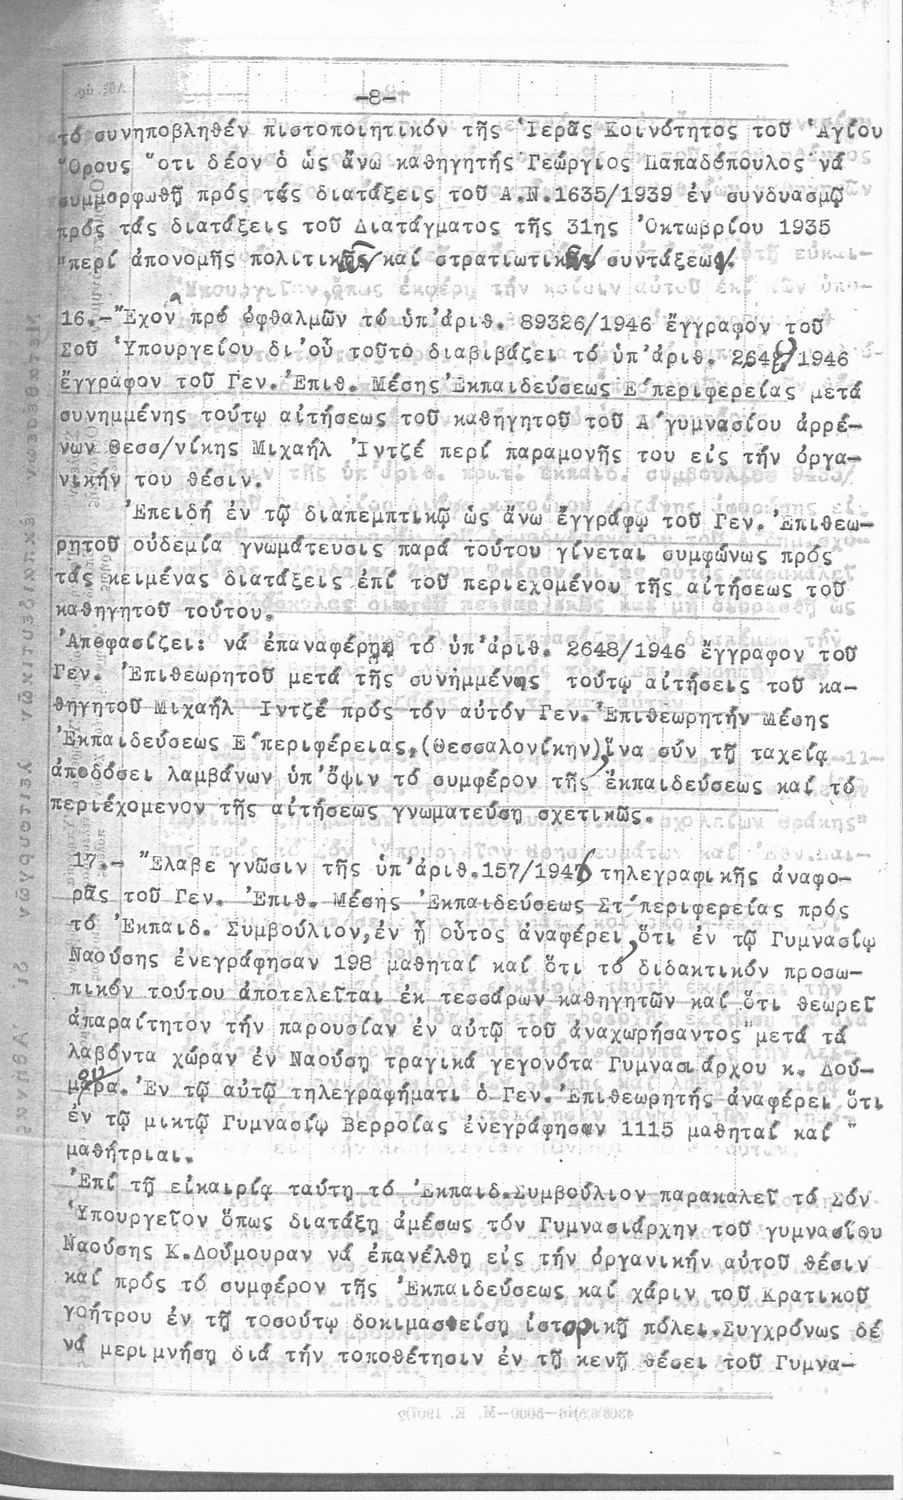 -8-
τό συνηποβληθέν πιστοποιητικόν τῆς Ἱερᾶς Κοινότητος τοῦ Ἁγίου
Ὄρους ὅτι δέον ὁ ὡς ἄνω καθηγητής Γεώργιος Παπαδόπουλος νά
συμμορφωθῇ πρός τάς διατάξεις τοῦ Α.Ν.1635/1939 ἐν συνδυασμῷ
πρός τάς διατάξεις τοῦ Διατάγματος τῆς 31ης Ὀκτωβρίου 1935
"περί ἀπονομῆς πολιτικῶν καί στρατιωτικῶν συντάξεων.
16.-Ἔχον πρό ὀφθαλμῶν τό ὑπ'ἀριθ. 89326/1946 ἔγγραφον τοῦ
Σοῦ Ὑπουργείου δι'οὗ τοῦτο διαβιβάζει τό ὑπ'ἀριθ. 2648/1946
ἔγγραφον τοῦ Γεν.Ἐπιθ. Μέσης Ἐκπαιδεύσεως Ε΄περιφερείας μετά
συνημμένης τούτῳ αἰτήσεως τοῦ καθηγητοῦ τοῦ Α΄γυμνασίου ἀρρέ-
νων Θεσσ/νίκης Μιχαήλ Ἰντζέ περί παραμονῆς του εἰς τήν ὀργα-
νικήν του θέσιν.
Ἐπειδή ἐν τῷ διαπεμπτικῷ ὡς ἄνω ἔγγράφῳ τοῦ Γεν.Ἐπιθεω-
ρητοῦ οὐδεμία γνωμάτευσις παρά τούτου γίνεται συμφώνως πρός
τάς κειμένας διατάξεις ἐπί τοῦ περιεχομένου τῆς αἰτήσεως τοῦ
καθηγητοῦ τούτου.
Ἀποφασίζει: νά ἐπαναφέρῃ τό ὑπ'ἀριθ. 2648/1946 ἔγγραφον τοῦ
Γεν. Ἐπιθεωρητοῦ μετά τῆς συνημμένης τούτῳ αἰτήσεις τοῦ κα-
θηγητοῦ Μιχαήλ Ἰντζέ πρός τόν αὐτόν Γεν.Ἐπιθεωρητήν Μέσης
Ἐκπαιδεύσεως Ε΄περιφέρειας,(Θεσσαλονίκην),ἵνα σύν τῇ ταχείᾳ
ἀποδόσει λαμβάνων ὑπ'ὄψιν τό συμφέρον τῆς ἐκπαιδεύσεως καί τό
περιέχομενον τῆς αἰτήσεως γνωματεύσῃ σχετικῶς.
17.- Ἔλαβε γνῶσιν τῆς ὑπ'ἀριθ.157/1946 τηλεγραφικῆς ἀναφο-
ρᾶς τοῦ Γεν. Ἐπιθ. Μέσης Ἐκπαιδεύσεως Στ΄περιφερείας πρός
τό Ἐκπαιδ. Συμβούλιον,ἐν ᾗ οὗτος ἀναφέρει,ὅτι ἐν τῷ Γυμνασίῳ
Ναούσης ἐνεγράφησαν 198 μαθηταί καί ὅτι τό διδακτικόν προσω-
πικόν τούτου ἀποτελεῖται ἐκ τεσσάρων καθηγητῶν καί ὅτι θεωρεῖ
ἀπαραίτητον τήν παρουσίαν ἐν αὐτῷ τοῦ ἀναχωρήσαντος"μετά τά
λαβόντα χώραν ἐν Ναούσῃ τραγικά γεγονότα Γυμνασιάρχου κ. Δού-
μουρα. Ἐν τῷ αὐτῷ τηλεγραφήματι ὁ Γεν.Ἐπιθεωρητής ἀναφέρει ὅτι
ἐν τῷ μικτῷ Γυμνασίῳ Βερροίας ἐνεγράφησαν 1115 μαθηταί καί "
μαθήτριαι.
Ἐπί τῇ εὐκαιρίᾳ ταύτῃ τό Ἐκπαιδ.Συμβούλιον παρακαλεῖ τό Σόν
Ὑπουργεῖον ὅπως διατάξῃ ἀμέσως τόν Γυμνασιάρχην τοῦ γυμνασίου
Ναούσης Κ.Δούμουραν νά ἐπανέλθῃ εἰς τήν ὀργανικήν αὐτοῦ θέσιν
καί πρός τό συμφέρον τῆς Ἐκπαιδεύσεως καί χάριν τοῦ Κρατικοῦ
γοήτρου ἐν τῇ τοσούτῳ δοκιμασθείσῃ ἱστορικῇ πόλει.Συγχρόνως δέ
νά μεριμνήσῃ διά τήν τοποθέτησιν ἐν τῇ κενῇ θέσει τοῦ Γυμνα-